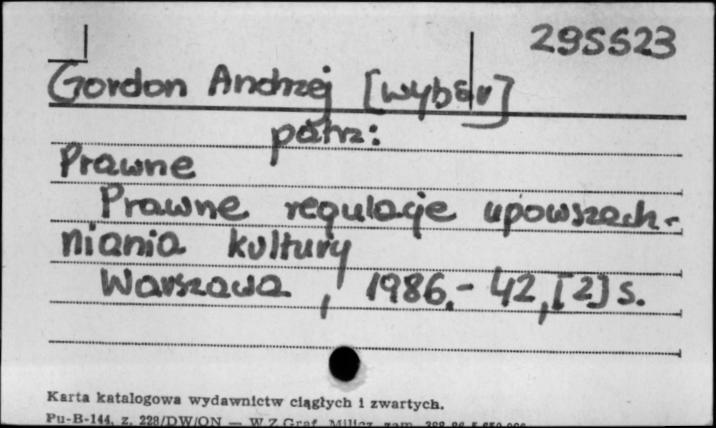 295523
Gordon Andrzej [wybór]
patrz:
Prawne
Prawne regulacje upowszech-
niania kultury
Warszawa, 1986.- 42,[2] s.
Karta katalogowa wydawnictw ciągłych i zwartych.
Pu-B-144, z. 228/DW/ON — WZ Graf. Milicz, zam.